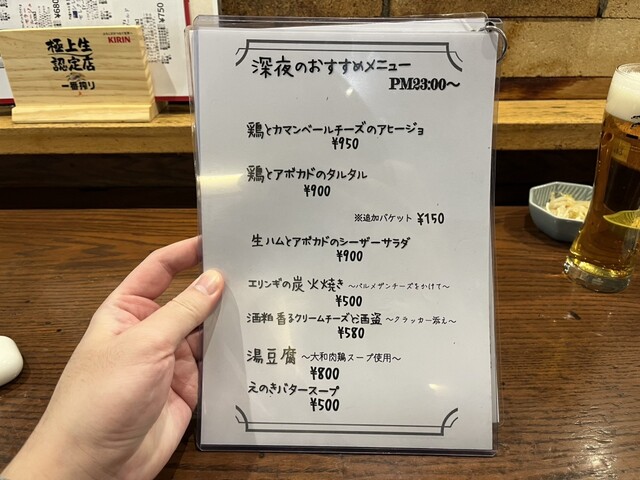 極上生
認定店
一番搾り
KIRIN
¥680
¥750
深夜のおすすめメニュー
PM23:00〜
鶏とカマンベールチーズのアヒージョ
¥950
鶏とアボカドのタルタル
¥900
※追加バケット ¥150
生ハムとアボカドのシーザーサラダ
¥900
エリンギの炭火焼き 〜パルメザンチーズをかけて〜
¥500
酒粕香るクリームチーズと酒盗 〜クラッカー添え〜
¥580
湯豆腐 〜大和肉鶏スープ使用〜
¥800
えのきバタースープ
¥500